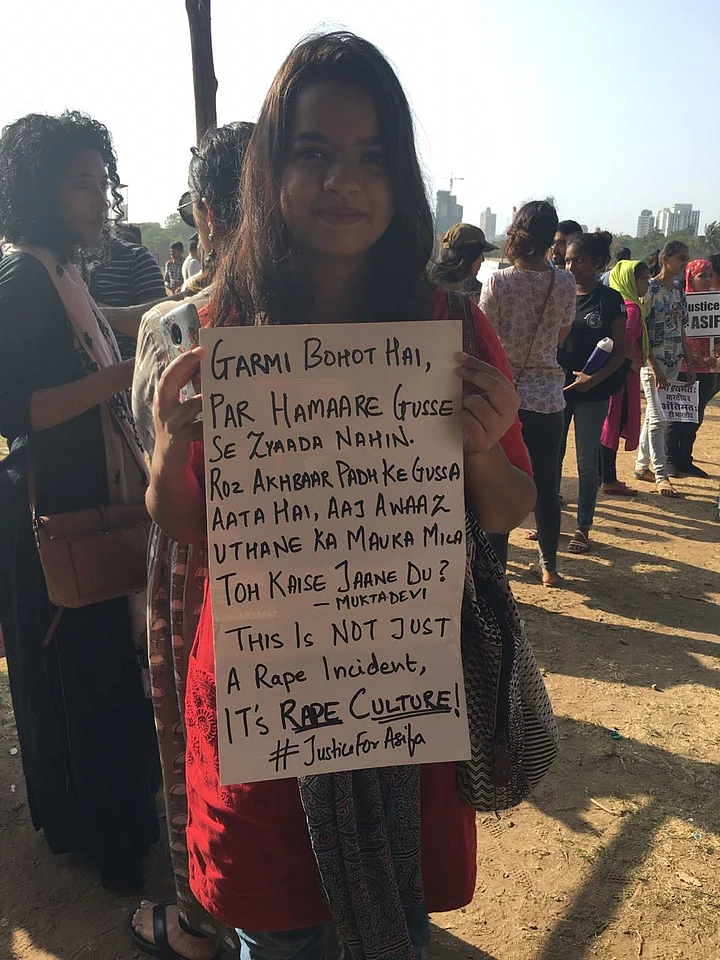 GARMI BOHOT HAI,
PAR HAMAARE GUSSE
SE ZYAADA NAHIN.
ROZ AKHBAAR PADH KE GUSSA
AATA HAI, AAJ AWAAZ
UTHANE KA MAUKA MILA
TOH KAISE JAANE DU?
- MUKTADEVI
THIS IS NOT JUST
A Rape Incident,
IT'S RAPE CULTURE!
#JusticeForAsifa
ustice
ASIF
भारतीय व
अंतिमत:
भारतीय